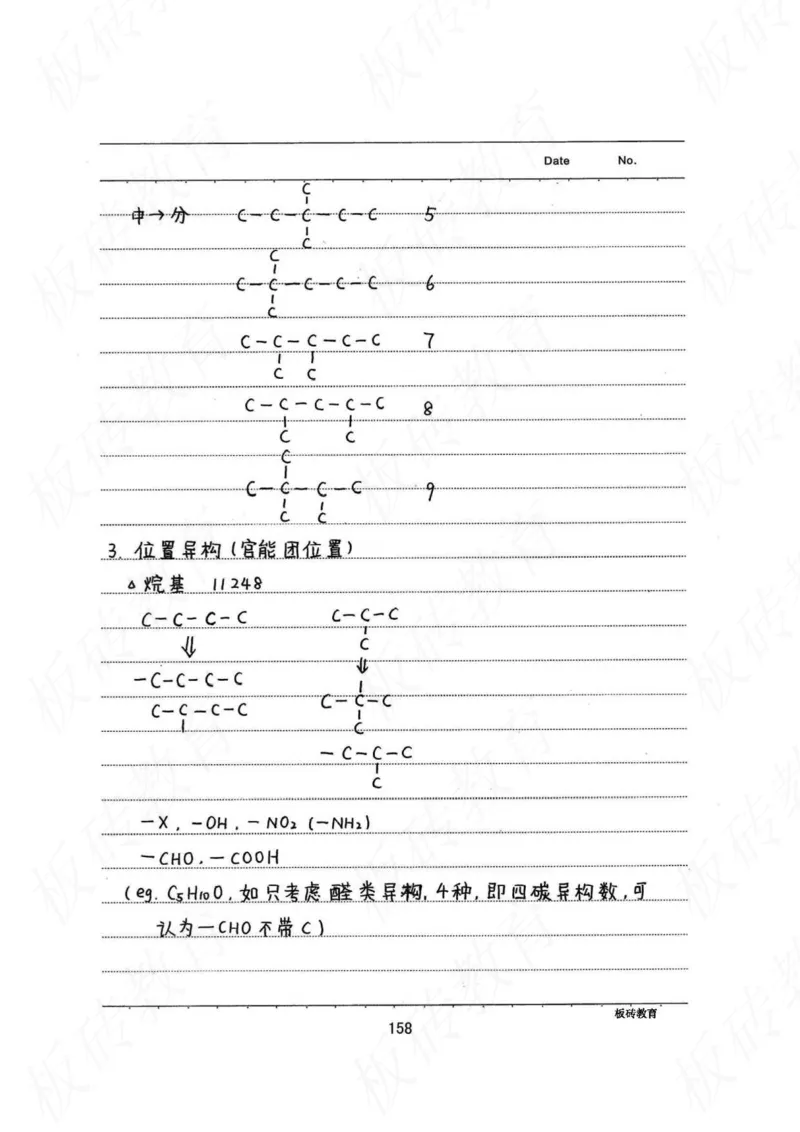 Date No.
C
中→分 C-C-C-C-C 5
C
C
C-C-C-C-C 6
C
C-C-C-C-C 7
C C
C-C-C-C-C 8
C C
C
C-C-C-C 9
C C
3. 位置异构(官能团位置)
△ 烷基 11248
C-C-C-C C-C-C
C
⇓ ⇓
-C-C-C-C
C-C-C
C-C-C-C
C
-C-C-C
C
-X. -OH. -NO₂ (-NH₂)
-CHO. -COOH
(eg. C₅H₁₀O. 如只考虑醛类异构, 4种, 即四碳异构数, 可
认为-CHO不带C)
板砖教育
158
板砖教育